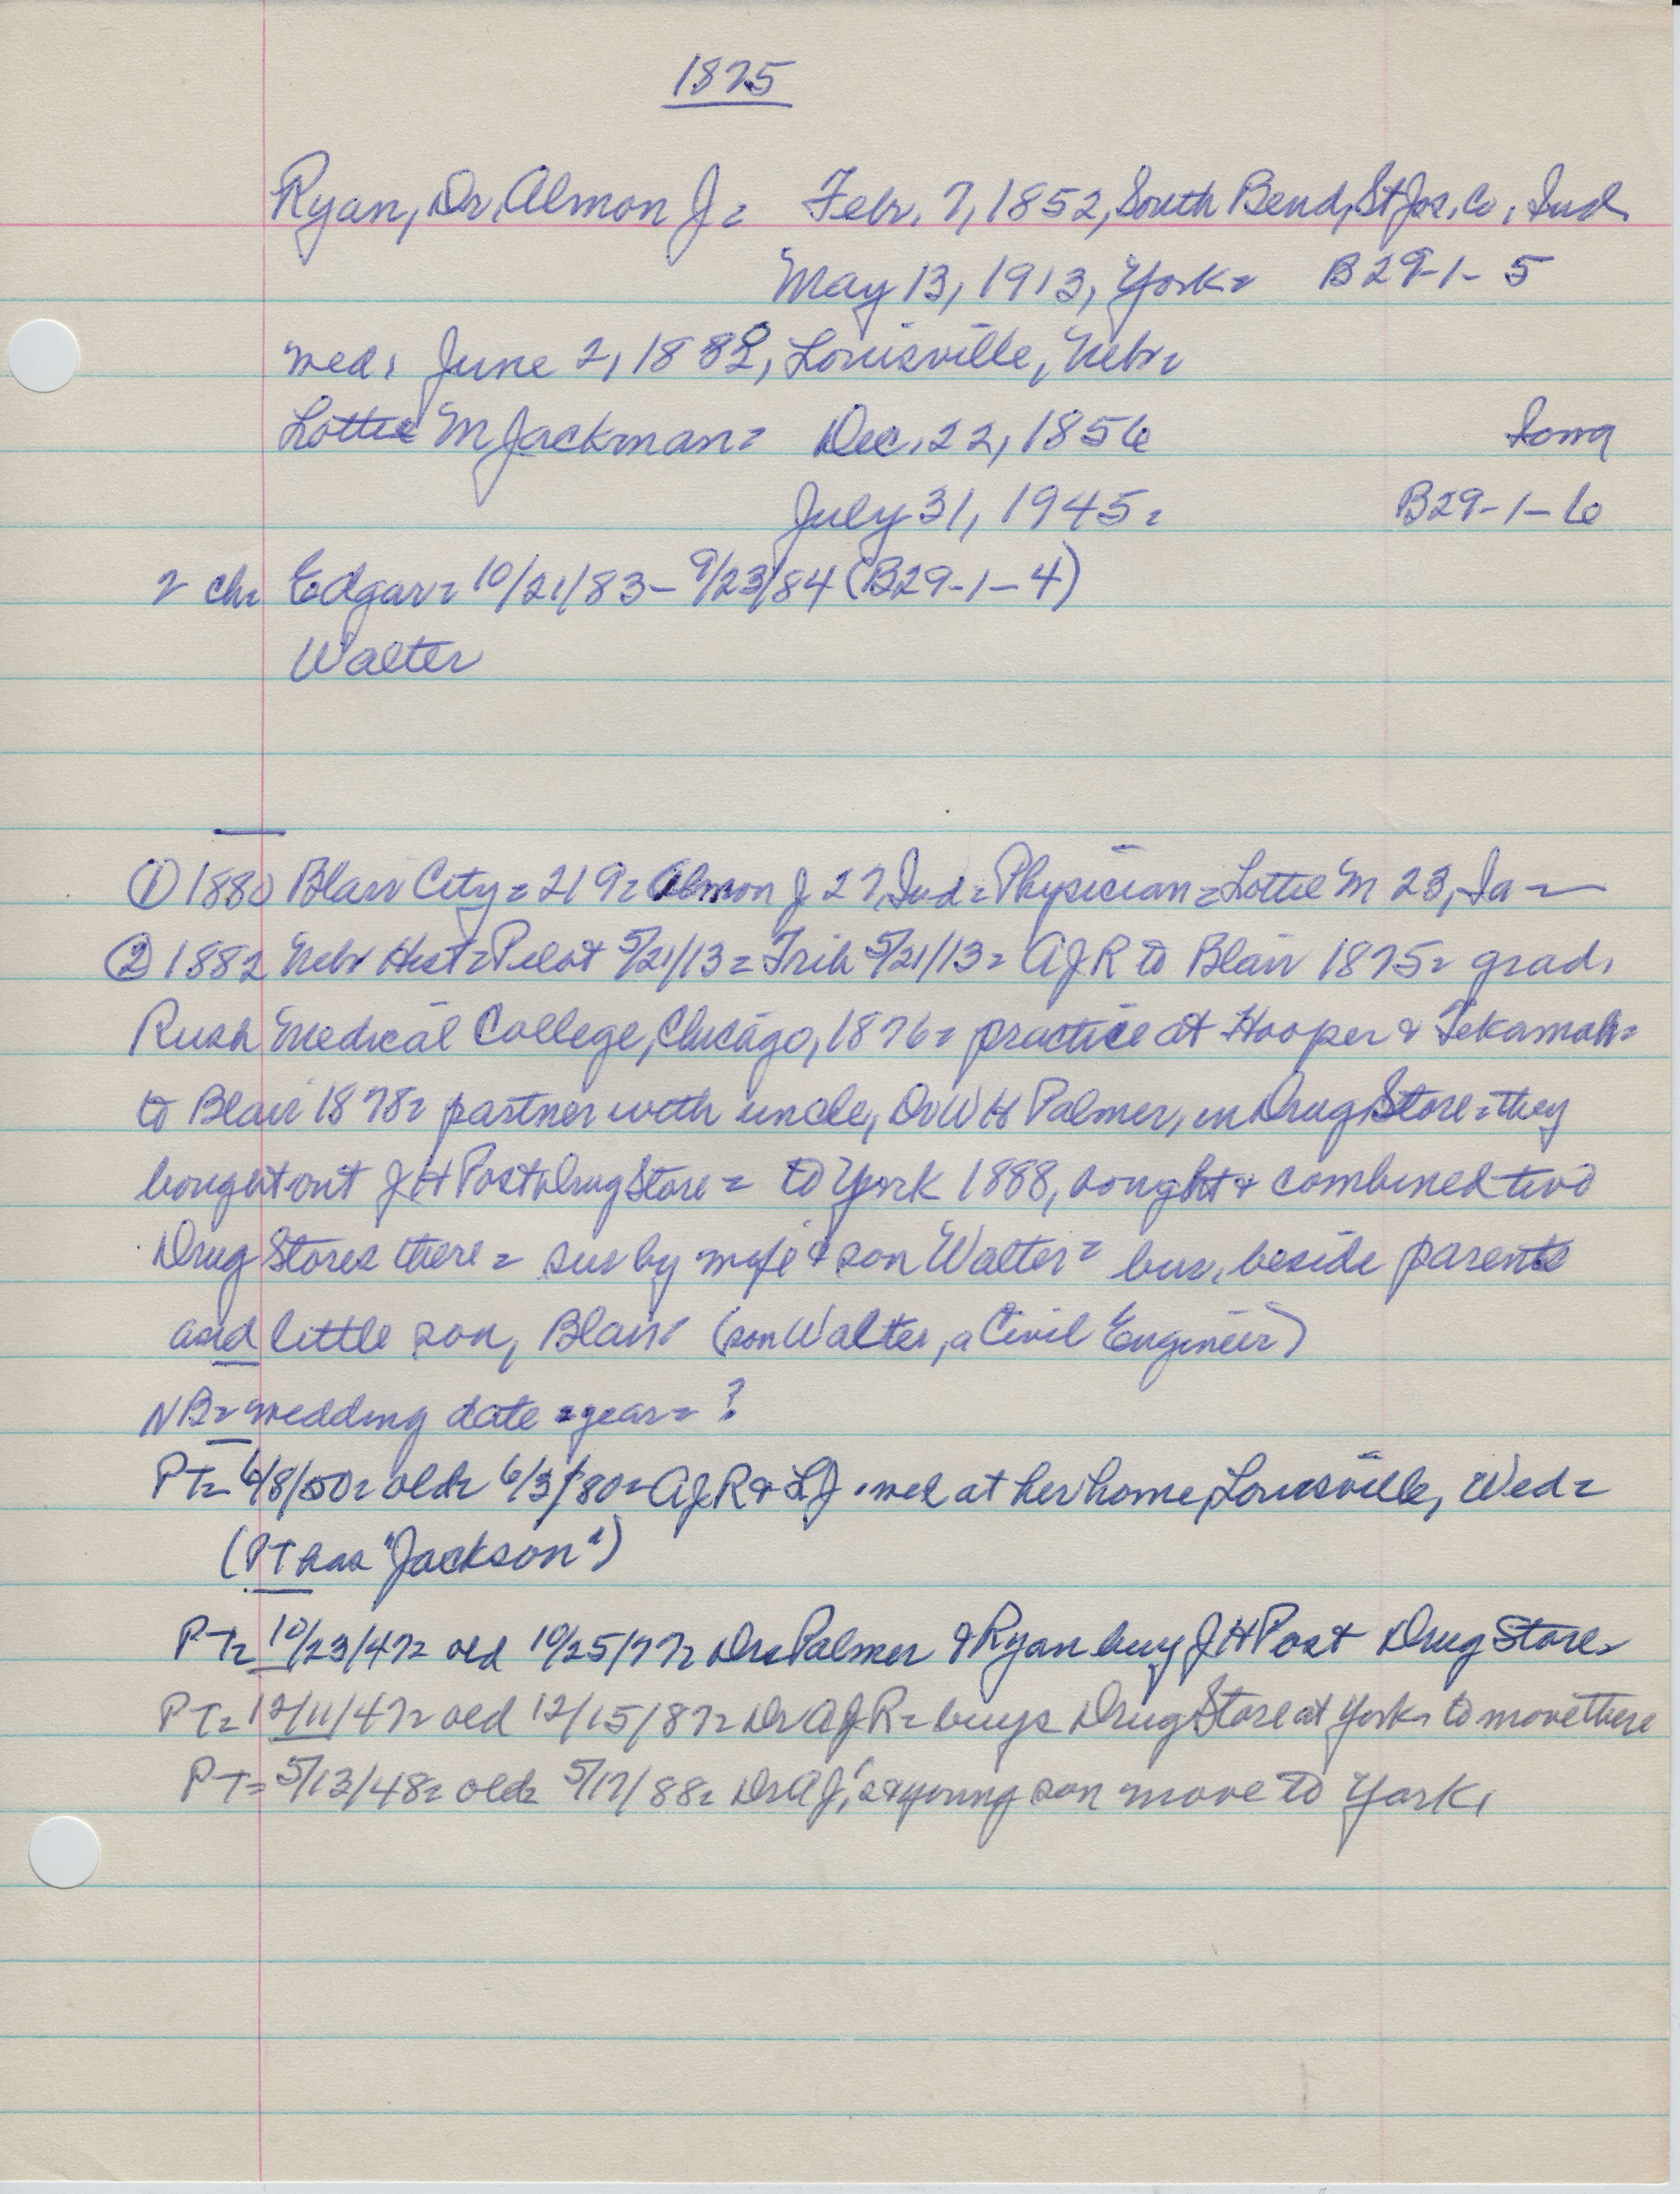 1875
Ryan, Dr. Almon J = Febr. 7, 1852, South Bend, St Jos. Co, Ind.
May 13, 1913, York = B29-1-5
wed. June 2, 1882, Louisville, Nebr =
Lottie M Jackman = Dec. 22, 1856 Iowa
July 31, 1945 = B29-1-6
2 ch = Edgar = 10/21/83 - 9/23/84 (B29-1-4)
Walter
① 1880 Blair City = 219 = Almon J 27, Ind = Physician = Lottie M 23, Ia =
② 1882 Nebr Hist = Pilot 5/21/13 = Trib 5/21/13 = AJR to Blair 1875 = grad.
Rush Medical College, Chicago, 1876 = practice at Hooper & Tekamah =
to Blair 1878 = partner with uncle, Dr W H Palmer, in Drug Store = they
bought out J H Post Drug Store = to York 1888, bought & combined two
Drug Stores there = sur by wife & son Walter = bur. beside parents
and little son, Blair = (son Walter, a Civil Engineer)
NB = wedding date = year = ?
PT = 6/8/50 = old = 6/3/80 = AJR & LJ wed at her home, Louisville, Wed =
(PT has "Jackson")
PT = 10/23/47 = old 10/25/77 = Drs Palmer & Ryan buy J H Post Drug Store =
PT = 12/11/47 = old 12/15/87 = Dr AJR = buys Drug Store at York = to move there
PT = 5/13/48 = old = 5/17/88 = Dr AJ's & young son move to York.